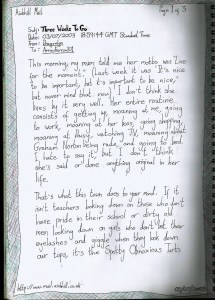 Rockhill Mail
Page 1 of 3
Subj: Three Weeks To Go
Date: 03/07/2003 8:59:44 GMT Standard Time
From:
To:
This morning, my mum told me her motto was 'Live
for the moment.' (Last week it was 'It's nice
to be important, but it's important to be nice,'
but never mind that now.) I don't think she
lives by it very well. Her entire routine
consists of getting up, moaning at me, going
to work, moaning at her boss, going shopping,
moaning at thirty, watching TV, moaning about
Graham Norton being rude, and going to bed.
I hate to say it, but I don't think
she's said or done anything original in her
life.
That's what this town does to your mind. If it
isn't teachers looking down on those who don't
have pride in their school or dirty old
men looking down on girls who don't bat their
eyelashes and giggle when they look down
our tops, it's the Openly Obnoxious